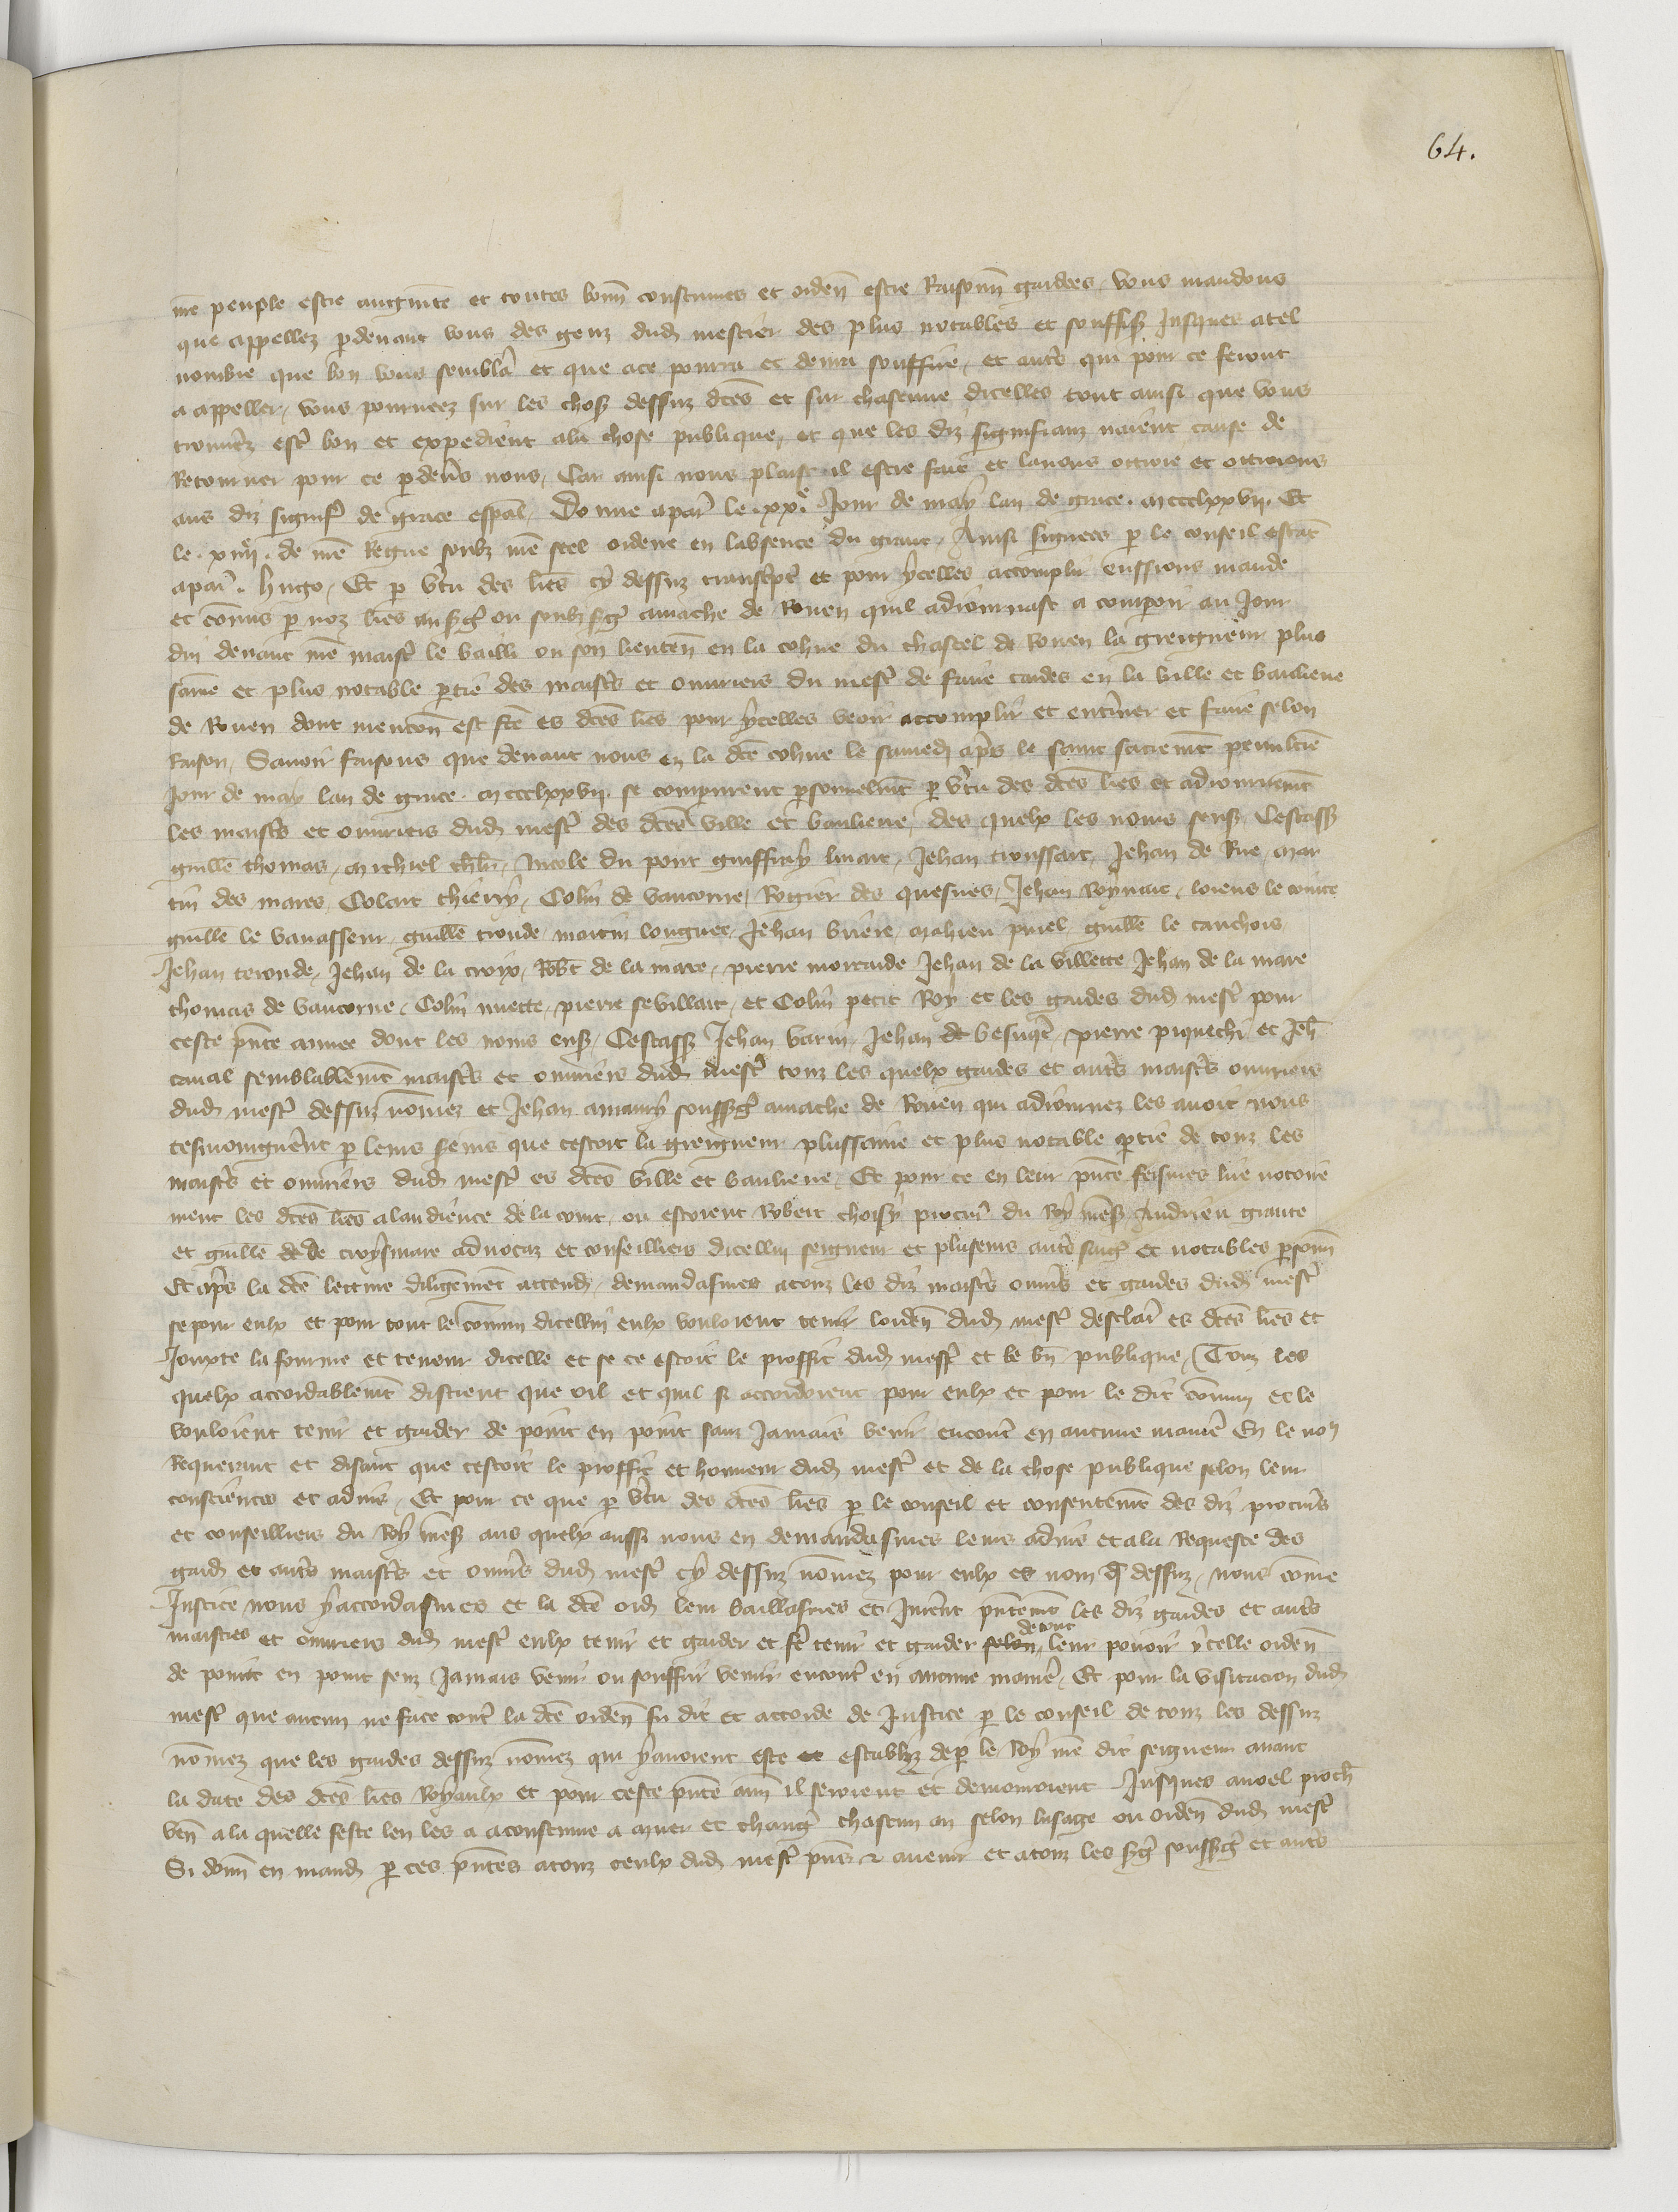 64.
me peuple estre augmte et toutes bonn coustumes et orden estre Raisonn gardees vous mandons
que appellez pdevant vous des genz dud mestier des plus notables et souffis Jusques atel
nombre que bon vous sembla et que ace pourra et devra souffire et auts qui pour ce feront
a appeller vous pourveez sur les chos dessuz dces et sur chascune dicelles tout ainsi que vous
trouvez est bon et expedient ala chose publique et que les diz signifianz naient cause de
Retourner pour ce pdevs nous Car ainsi nous plaist il estre fait et lavons ottroie et ottroions
aus diz signif de grace espal Donne apar le xxe Jour de may lan de grace mccclxxvii Et
le xiiii de me Regne soubz me seel ordene en labsence du grant Ainsi signees p le conseil estat
apar hugo Et p vtu des lres cy dessuz transcpt et pour ycelles accomplir eussions mande
et comis p noz lres au sg ou soubz sg amache de Rouen quil adiournast a comparoir au Jour
dui devant me maist le bailli ou son lieuten en la cohue du chastel de Rouen la greigneur plus
saine et plus notable ptie des maists et ouvriers du mest de faire cardes en la ville et banlieue
de Rouen dont mencon est fte es dces lres pour ycelles veoir accomplir et entiner et faire selon
Raison Savoir faisons que devant nous en la dce cohue le samedi aps le saint sacremt penultie
Jour de may lan de grace mccclxxvii se comparurent psonnelmt p vtu des dces lres et adiournemt
les maists et ouvriers dud mest des dces ville et banlieue des quelx les noms sens Cestass
guille thomas michiel Nicole du pont guiffray linart Jehan troussart Jehan de Rue mar
tin des mares Colart thierry Colin de vaucorne Rogier des quesnes Jehan Roynart lorens le conte
guille le vavasseur guille tronde martin longuet Jehan briere mahieu puiel guille le cauchois
Jehan teronde Jehan de la croix Robt de la mare pierre morcarde Jehan de la villette Jehan de la mare
thomas de vaucorne Colin nuette pierre sevillart et Colin petit Roy et les gardes dud mest pour
ceste pnte annee dont les noms ens Cestass Jehan varin Jehan de besuqe pierre piquechi et Jeh
caval semblablemt maists et ouvriers dud mest touz les quelx gardes et auts maists ouvriers
dud mest dessuz nomez et Jehan amaury soussg amache de Rouen qui adiournez les avoit nous
tesmoignent p leurs sems que cestoit la greigneur plussaine et plus notable ptie de touz les
maists et ouvriers dud mest es dces ville et banlieue Et pour ce en leur pnce feismes lire notoire
ment les dces lres alaudience de la court ou estoient Robert choisy procur du Roy mess Andrieu grante
et guille de de croysmare advocaz et conseilliers dicellui seigneur et pluseurs auts saig et notables psonn
Et aps la dce lecture diligemment attend demandasmes atouz les diz maists ouvrs et gardes dud mest
se pour eulx et pour tout le comun dicellui eulx vouloient tenir lorden dud mest desclar es dces lres et
Jouxte la fourme et teneur dicelle et se ce estoit le proffit dud mest et le bn publique Touz les
quelx accordablemt distrent que oil et quil si accordoient pour eulx et pour le dit comun et le
vouloient tenir et garder de point en point sanz Jamais venir encont en aucune manie En le nous
Requerant et disant que cestoit le proffit et honneur dud mest et de la chose publique selon leur
consciences et advis Et pour ce que p vtu des dces lres p le conseil et consentemt des diz procurs
et conseilliers du Roy mess aus quelx aussi nous en demandasmes leurs advis et ala Requeste des
gard et auts maists et ouvrs dud mest cy dessuz nomez pour eulx es nom q dessuz nous come
Justice nous y accordasmes et la dce ord leur baillasmes et Jurent pntemt les diz gardes et auts
maistres et ouvriers dud mest eulx tenir et garder et fe tenir et garder selon de tout leur povoir ycelle orden
de point en point senz Jamais venir ou souffrir venir encont en aucune manie Et pour la visitacion dud
mest que aucun ne face cont la dce orden fu dit et accorde de Justice p le conseil de touz les dessuz
nomez que les gardes dessuz nomez qui y avoient este et establiz dep le Roy me dit seigneur avant
la date des dces lres Royaulx et pour ceste pnte ann il seroient et demouroient Jusques anoel proch
ven ala quelle feste len les a acoustume a muer et chang chascun an selon lusage ou orden dud mest
Si donn en mand p ces pntes atouz ceulx dud mest pns et avenir et atouz les sg soussg et auts